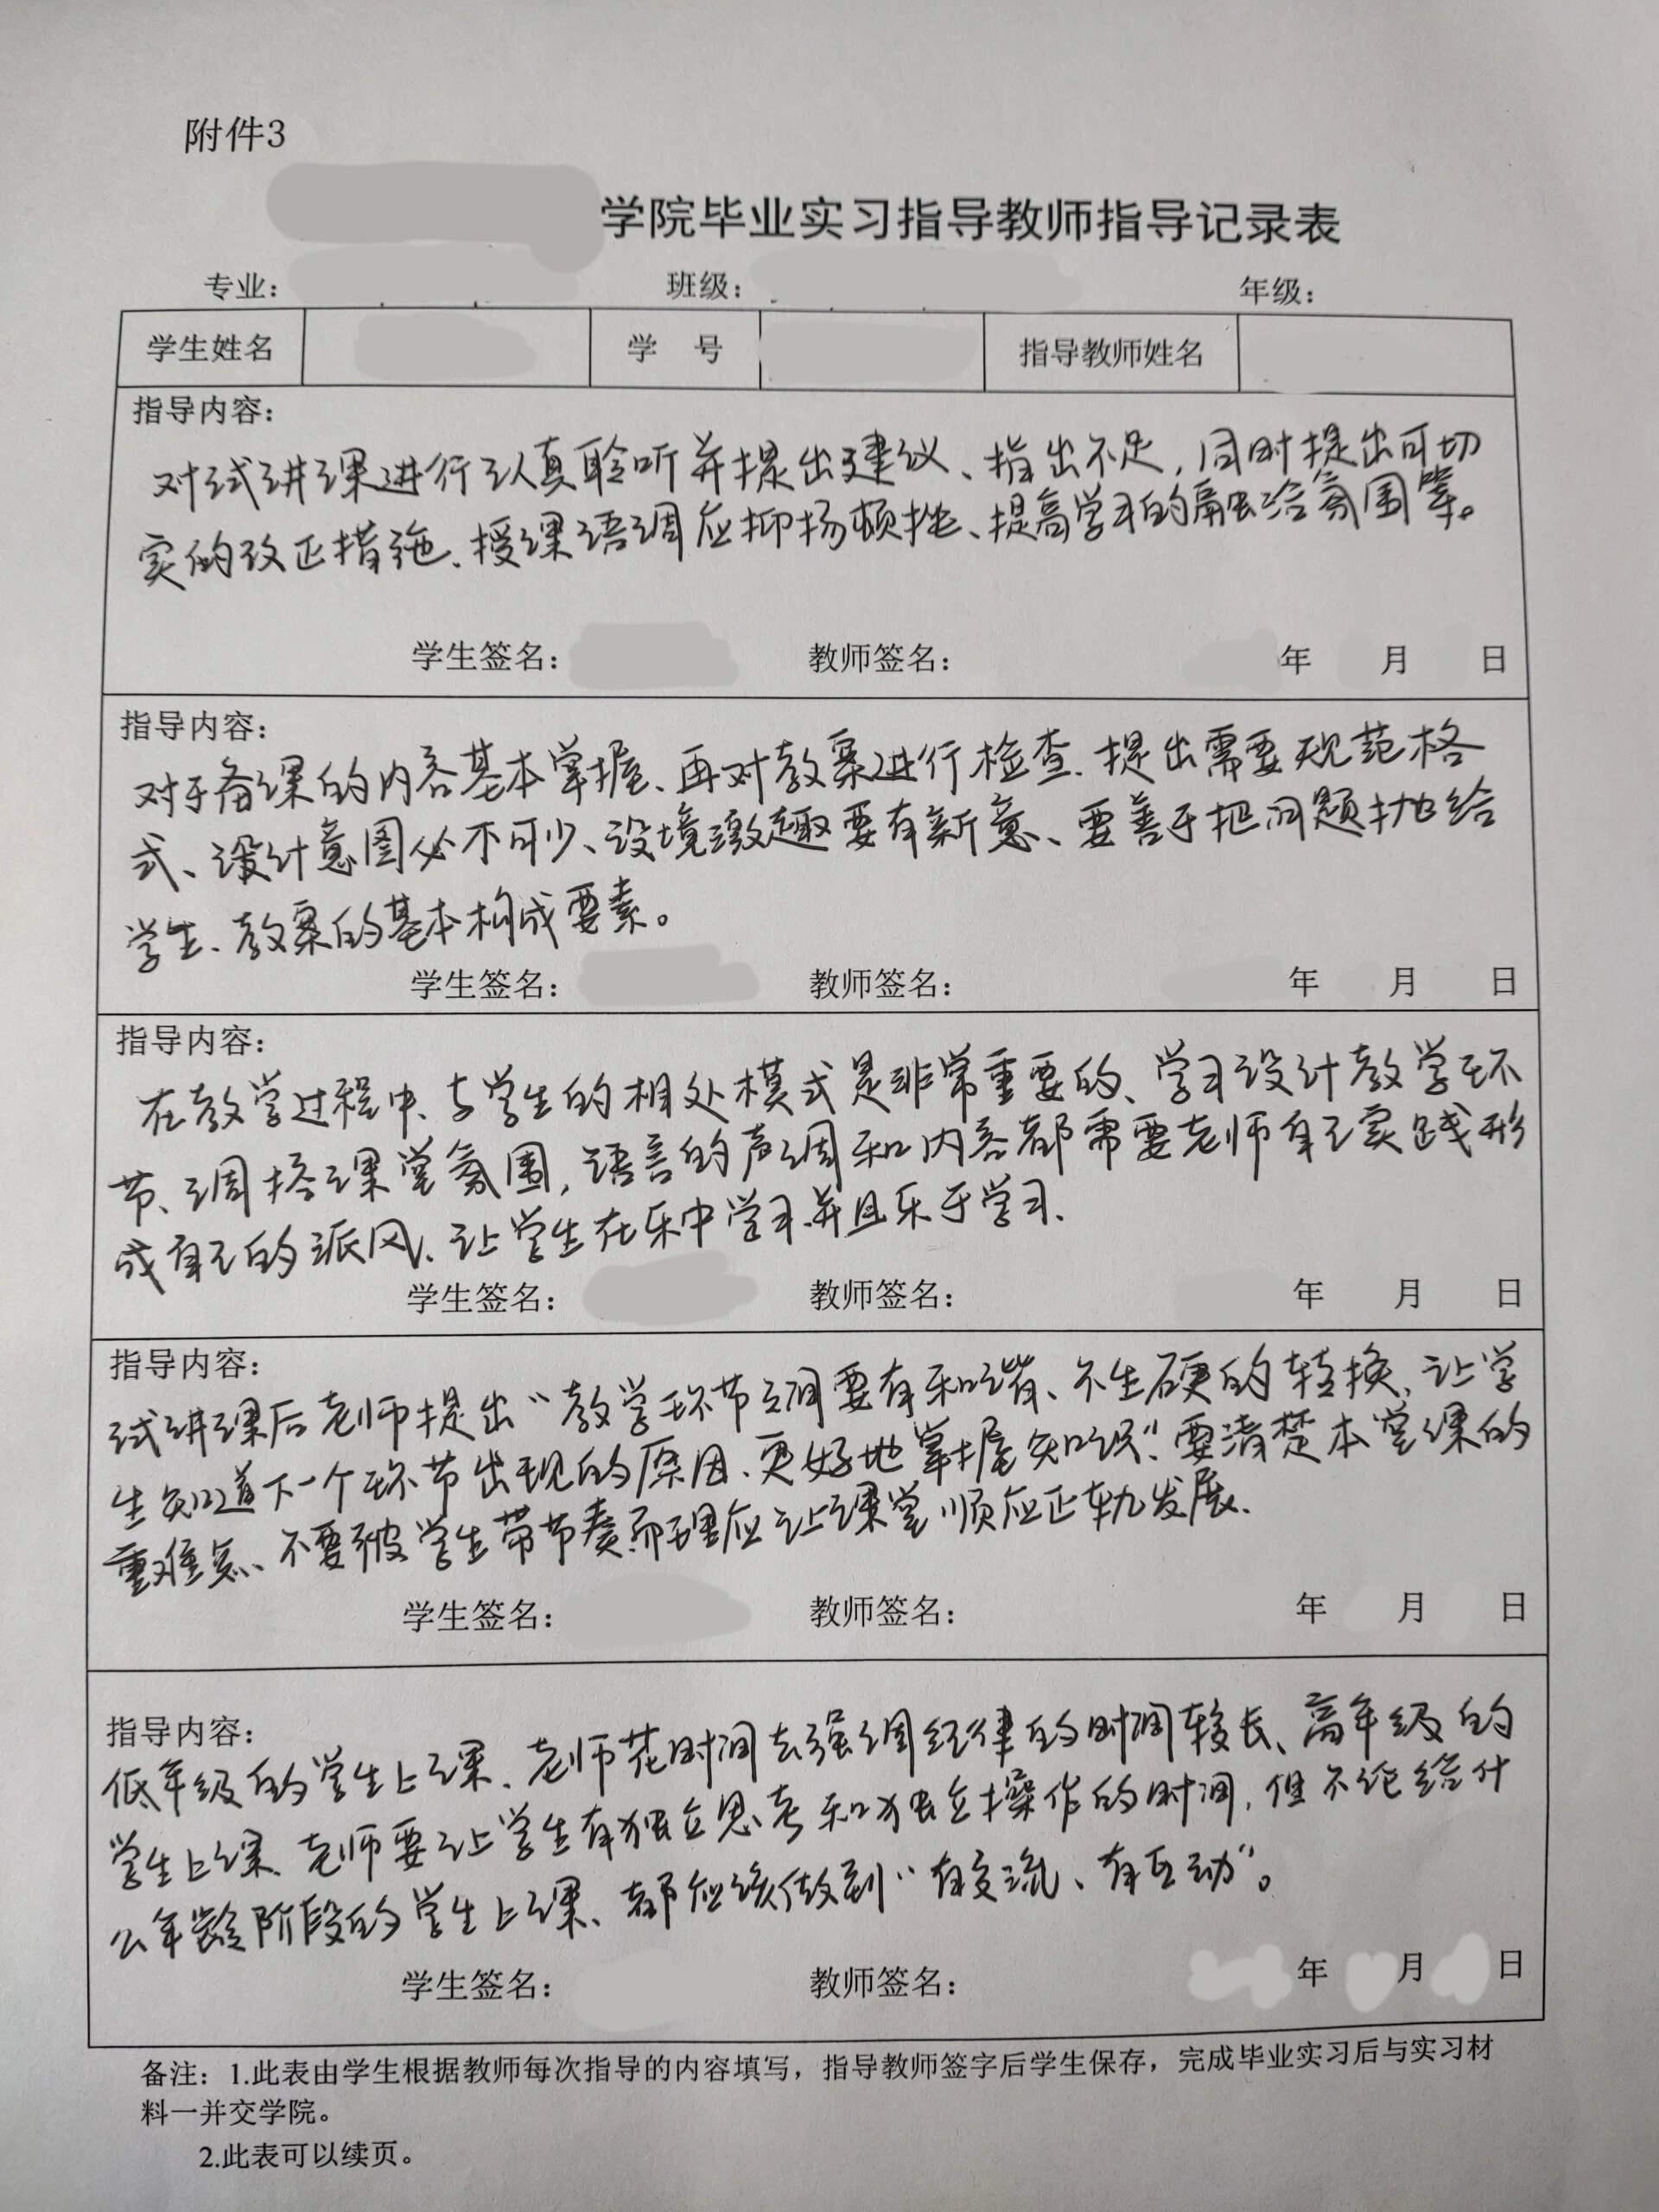 附件3
学院毕业实习指导教师指导记录表
专业： 班级： 年级：
学生姓名 学 号 指导教师姓名
指导内容：
对试讲课进行认真聆听并提出建议、指出不足，同时提出可切
实的改正措施、授课语调应抑扬顿挫、提高学习的融洽氛围等。
学生签名： 教师签名： 年 月 日
指导内容：
对于备课的内容基本掌握、再对教案进行检查、提出需要规范格
式、设计意图必不可少、设境激趣要有新意、要善于把问题抛给
学生、教案的基本构成要素。
学生签名： 教师签名： 年 月 日
指导内容：
在教学过程中、与学生的相处模式是非常重要的、学习设计教学环
节、调搭课堂氛围，语言的声调和内容都需要老师自己实践形
成自己的派风、让学生在乐中学习并且乐于学习、
学生签名： 教师签名： 年 月 日
指导内容：
试讲课后老师提出“教学环节之间要有和谐、不生硬的转换、让学
生知道下一个环节出现的原因、更好地掌握知识”、要清楚本堂课的
重难点、不要被学生带节奏而理应让课堂顺应正轨发展、
学生签名： 教师签名： 年 月 日
指导内容：
低年级的学生上课、老师花时间去强调纪律的时间较长、高年级的
学生上课、老师要让学生有独立思考和独立操作的时间，但不论给什
么年龄阶段的学生上课、都应该做到“有交流、有互动”。
学生签名： 教师签名： 年 月 日
备注：1.此表由学生根据教师每次指导的内容填写，指导教师签字后学生保存，完成毕业实习后与实习材
料一并交学院。
2.此表可以续页。